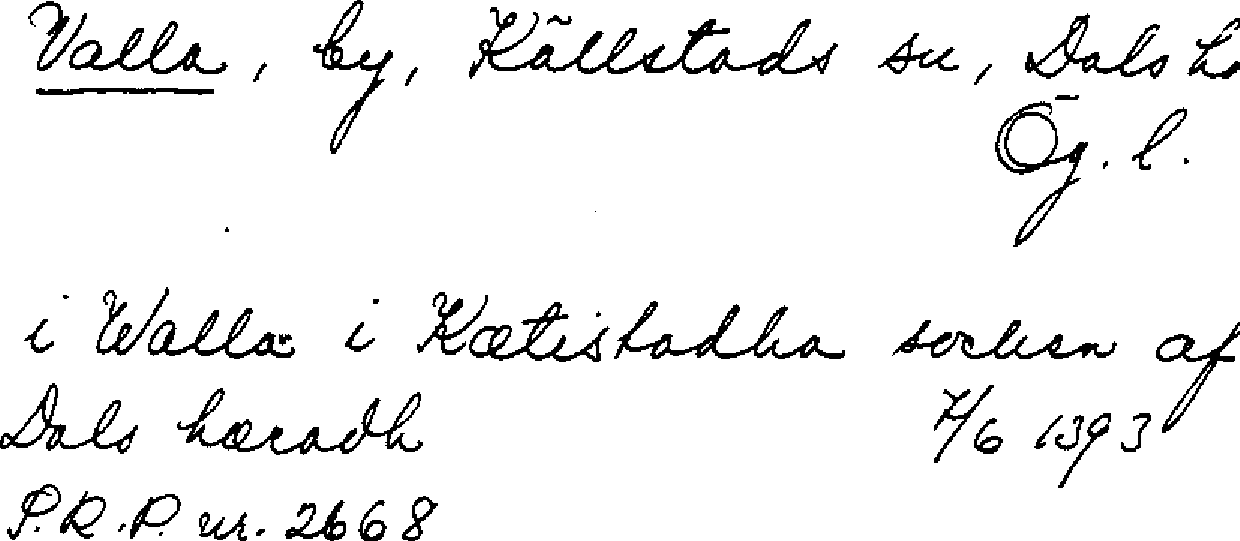 Valla, by, Källstads sn, Dals h
Ög. l.
i Walla i Kætistadha sochen af
Dals hæradh 7/6 1393
S.R.P. nr. 2668